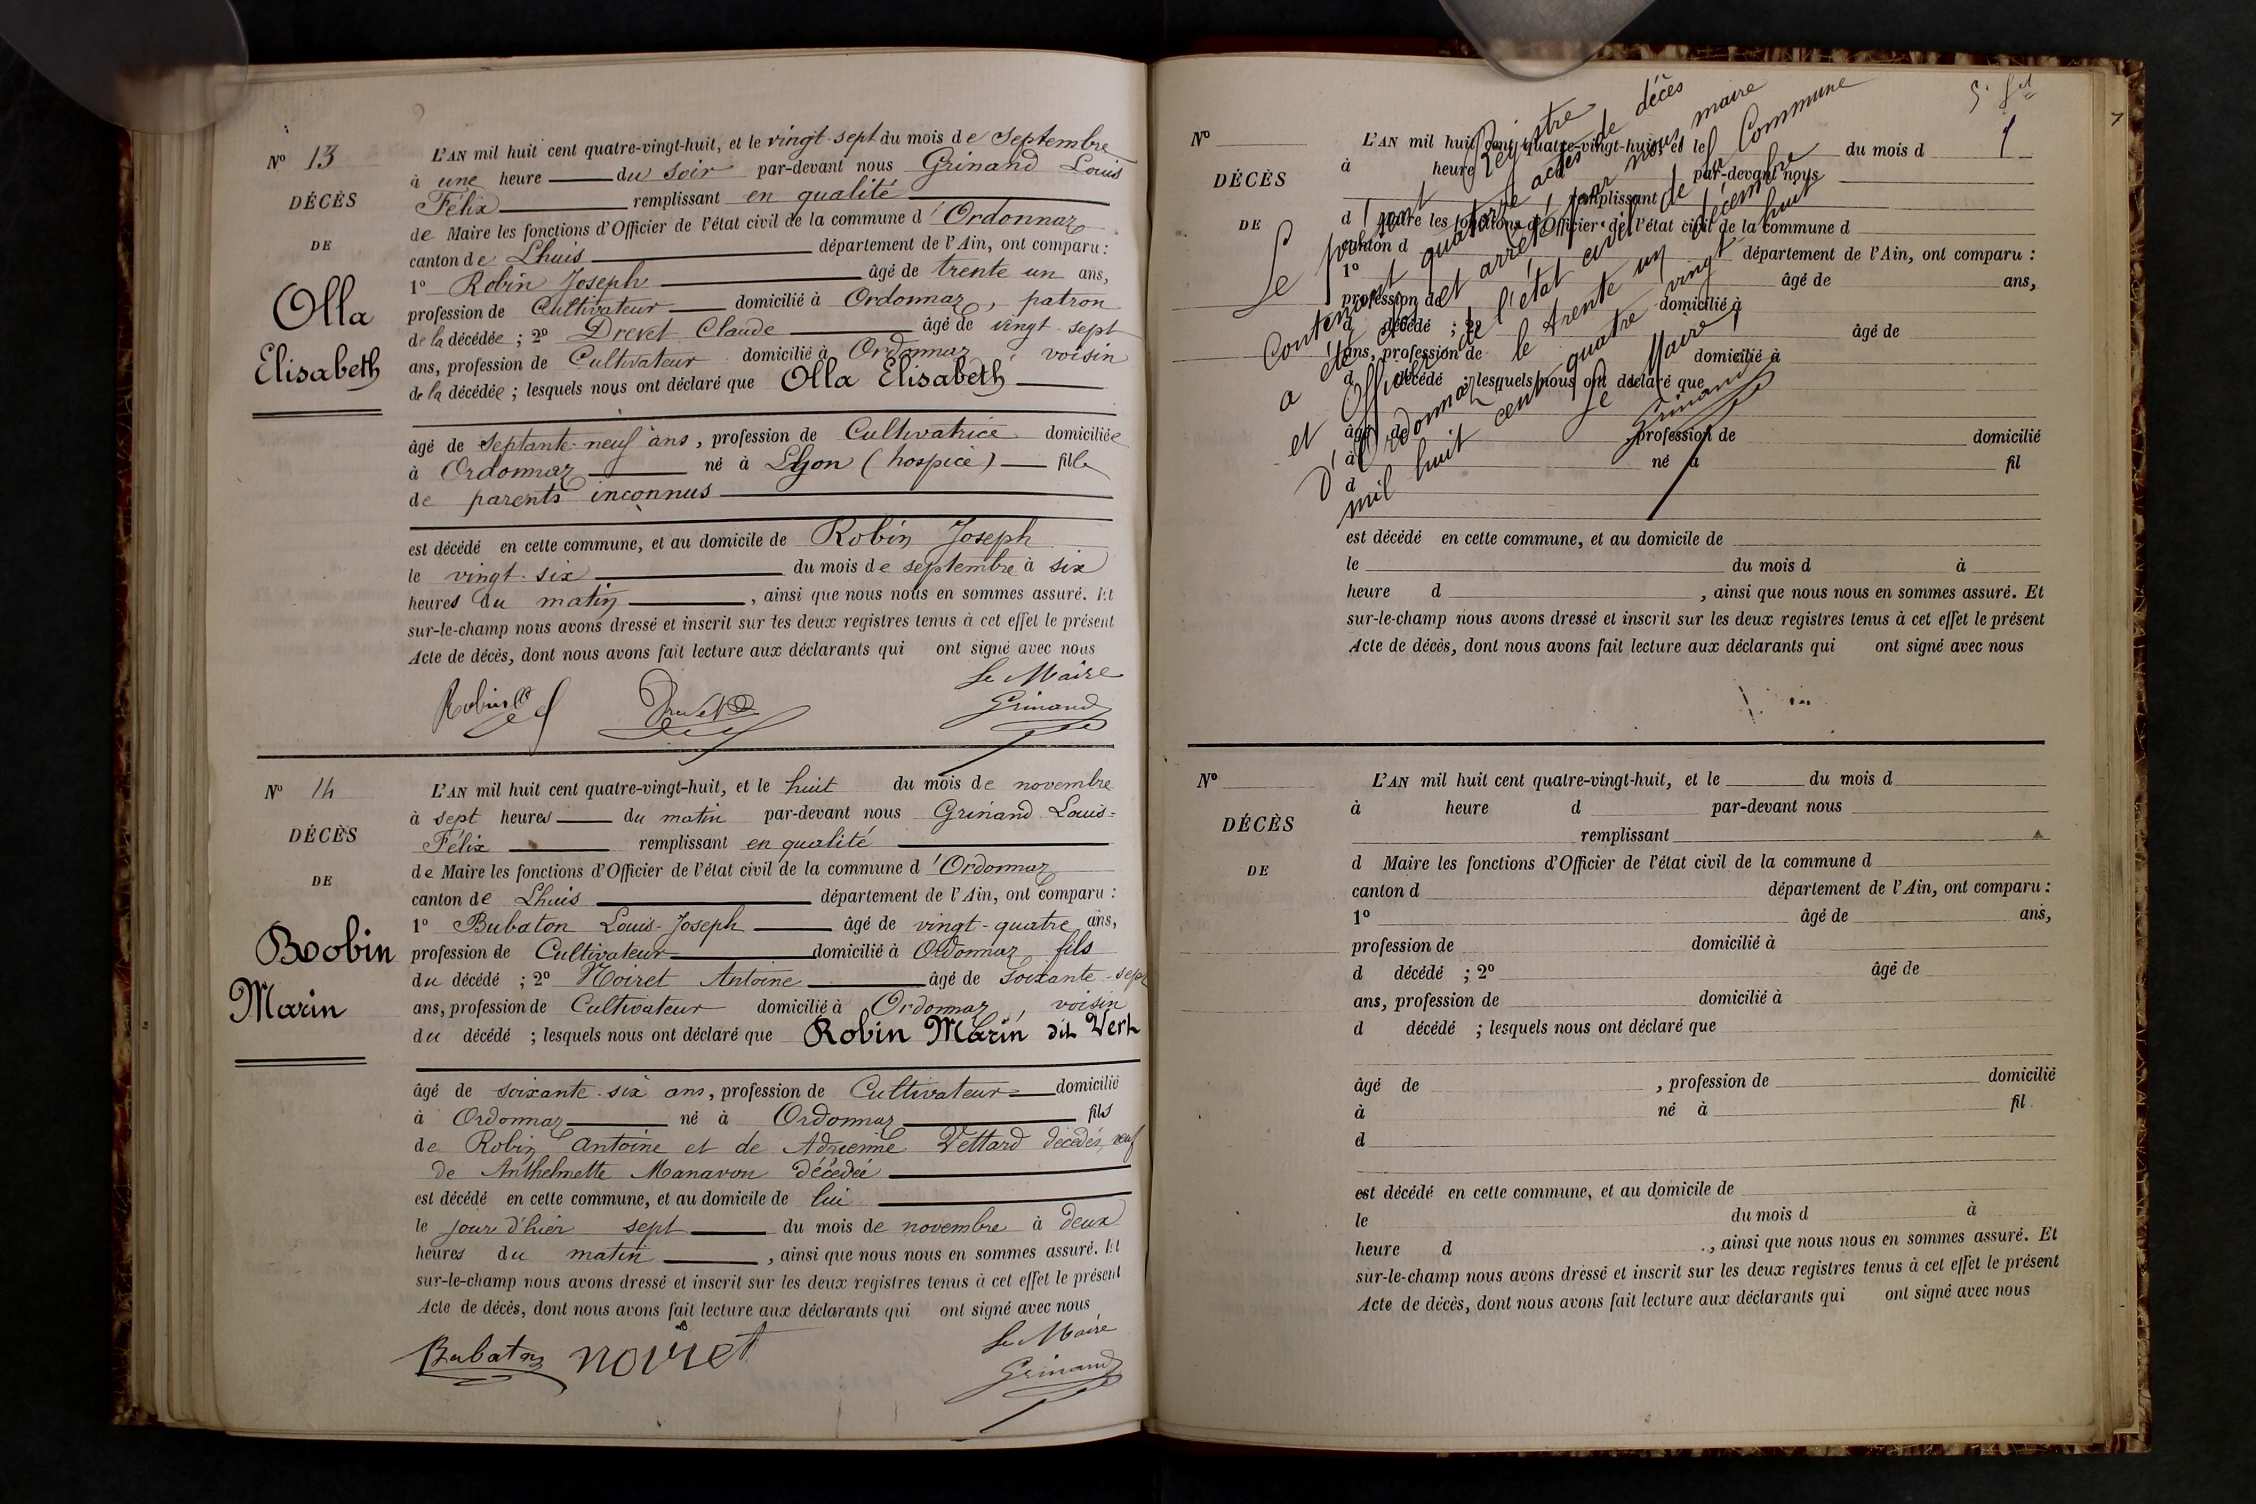 N° 13
DÉCÈS
DE
Olla
Elisabeth
L'AN mil huit cent quatre-vingt-huit, et le vingt-sept du mois de Septembre
à une heure du soir par-devant nous Grinand Louis
Félix remplissant en qualité
de Maire les fonctions d'Officier de l'état civil de la commune d'Ordonnaz
canton de Lhuis département de l'Ain, ont comparu :
1° Robin Joseph âgé de trente un ans,
profession de Cultivateur domicilié à Ordonnaz, patron
de la décédée ; 2° Drevet Claude âgé de vingt-sept
ans, profession de Cultivateur domicilié à Ordonnaz, voisin
de la décédée ; lesquels nous ont déclaré que Olla Elisabeth
âgé de septante-neuf ans, profession de Cultivatrice domiciliée
à Ordonnaz né à Lyon (hospice) fille
de parents inconnus
est décédé en cette commune, et au domicile de Robin Joseph
le vingt-six du mois de septembre à six
heures du matin, ainsi que nous nous en sommes assuré. Et
sur-le-champ nous avons dressé et inscrit sur les deux registres tenus à cet effet le présent
Acte de décès, dont nous avons fait lecture aux déclarants qui ont signé avec nous
Le Maire
Robin Drevet Grinand
N° 14
DÉCÈS
DE
Robin
Marin
L'AN mil huit cent quatre-vingt-huit, et le huit du mois de novembre
à sept heures du matin par-devant nous Grinand Louis-
Félix remplissant en qualité
de Maire les fonctions d'Officier de l'état civil de la commune d'Ordonnaz
canton de Lhuis département de l'Ain, ont comparu :
1° Bubaton Louis-Joseph âgé de vingt-quatre ans,
profession de Cultivateur domicilié à Ordonnaz fils
du décédé ; 2° Noiret Antoine âgé de soixante-sept
ans, profession de Cultivateur domicilié à Ordonnaz, voisin
du décédé ; lesquels nous ont déclaré que Robin Marin dit Vert
âgé de soixante-six ans, profession de Cultivateur domicilié
à Ordonnaz né à Ordonnaz fils
de Robin Antoine et de Adrienne Vettard décédés, veuf
de Anthelmette Manavon décédée
est décédé en cette commune, et au domicile de lui
le jour d'hier sept du mois de novembre à deux
heures du matin, ainsi que nous nous en sommes assuré. Et
sur-le-champ nous avons dressé et inscrit sur les deux registres tenus à cet effet le présent
Acte de décès, dont nous avons fait lecture aux déclarants qui ont signé avec nous
Le Maire
Bubaton noiret Grinand
7
Le présent Registre
contenant quatorze actes de décès
a été clos et arrêté par nous maire
et Officier de l'état civil de la Commune
d'Ordonnaz le trente un décembre
mil huit cent quatre vingt huit
Le Maire,
Grinand
N°
DÉCÈS
DE
L'AN mil huit cent quatre-vingt-huit, et le du mois d
à heure par-devant nous
remplissant
d Maire les fonctions d'Officier de l'état civil de la commune d
canton d département de l'Ain, ont comparu :
1° âgé de ans,
profession de domicilié à
d décédé ; 2° âgé de
ans, profession de domicilié à
d décédé ; lesquels nous ont déclaré que
âgé de profession de domicilié
à né à fil
d
est décédé en cette commune, et au domicile de
le du mois d à
heure d , ainsi que nous nous en sommes assuré. Et
sur-le-champ nous avons dressé et inscrit sur les deux registres tenus à cet effet le présent
Acte de décès, dont nous avons fait lecture aux déclarants qui ont signé avec nous
N°
DÉCÈS
DE
L'AN mil huit cent quatre-vingt-huit, et le du mois d
à heure d par-devant nous
remplissant
d Maire les fonctions d'Officier de l'état civil de la commune d
canton d département de l'Ain, ont comparu :
1° âgé de ans,
profession de domicilié à
d décédé ; 2° âgé de
ans, profession de domicilié à
d décédé ; lesquels nous ont déclaré que
âgé de , profession de domicilié
à né à fil
d
est décédé en cette commune, et au domicile de
le du mois d à
heure d , ainsi que nous nous en sommes assuré. Et
sur-le-champ nous avons dressé et inscrit sur les deux registres tenus à cet effet le présent
Acte de décès, dont nous avons fait lecture aux déclarants qui ont signé avec nous